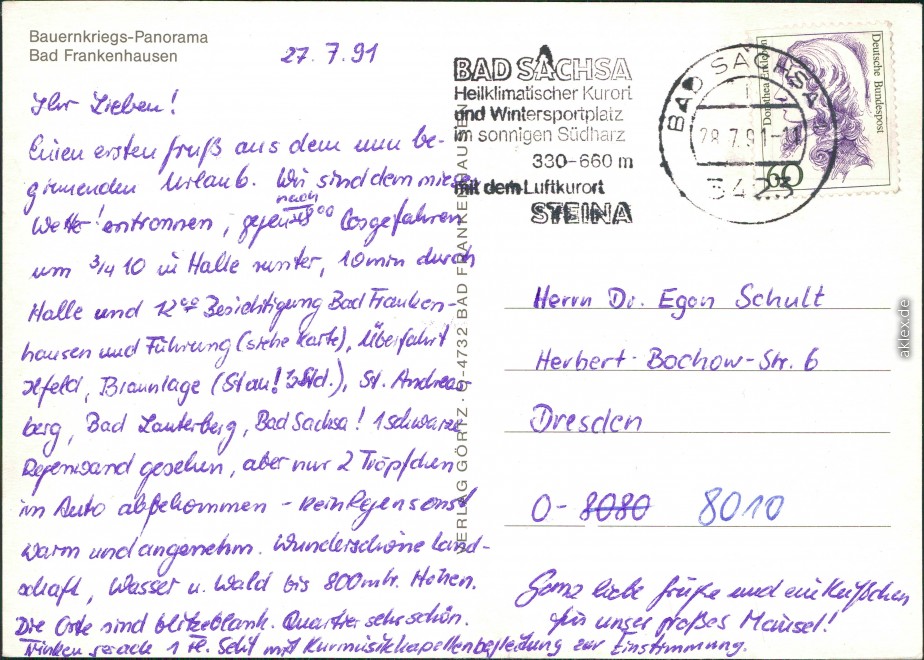 Bauernkriegs-Panorama
Bad Frankenhausen
27.7.91
Ihr Lieben!
Einen ersten Gruß aus dem nun be-
ginnenden Urlaub. Wir sind dem miesen
Wetter entronnen, gegen
nach
8⁰⁰ losgefahren
um 3/4 10 in Halle runter, 10 min durch
Halle und 12⁰⁰ Besichtigung Bad Franken-
hausen und Führung (siehe Karte), Überfahrt
Ilfeld, Braunlage (Stau! Std.), St. Andreas
berg, Bad Lauterberg, Bad Sachsa! 1 schwarze
Regenwand gesehen, aber nur 2 Tröpfchen
im Auto abbekommen - kein Regen sonst
warm und angenehm. Wunderschöne Land-
schaft, Wasser u. Wald bis 800 mtr. Höhen.
Die Orte sind blitzeblank. Quartier sehr schön.
Trinken gerade 1 Fl. Sekt mit Kurmusikkapellenbegleitung zur Einstimmung.
VERLAG GÖRTZ · O-4732 BAD FRANKENHAUSEN
BAD SACHSA
Heilklimatischer Kurort
und Wintersportplatz
im sonnigen Südharz
330-660 m
mit dem Luftkurort
STEINA
BAD SACHSA
28.7.91-11
3423
Deutsche Bundespost
Dorothea Erxleben
60
Herrn Dr. Egon Schult
Herbert-Bochow-Str. 6
Dresden
O-8080 8010
Ganz liebe Grüße und ein Küßchen
für unser großes Mausel!
aklex.de